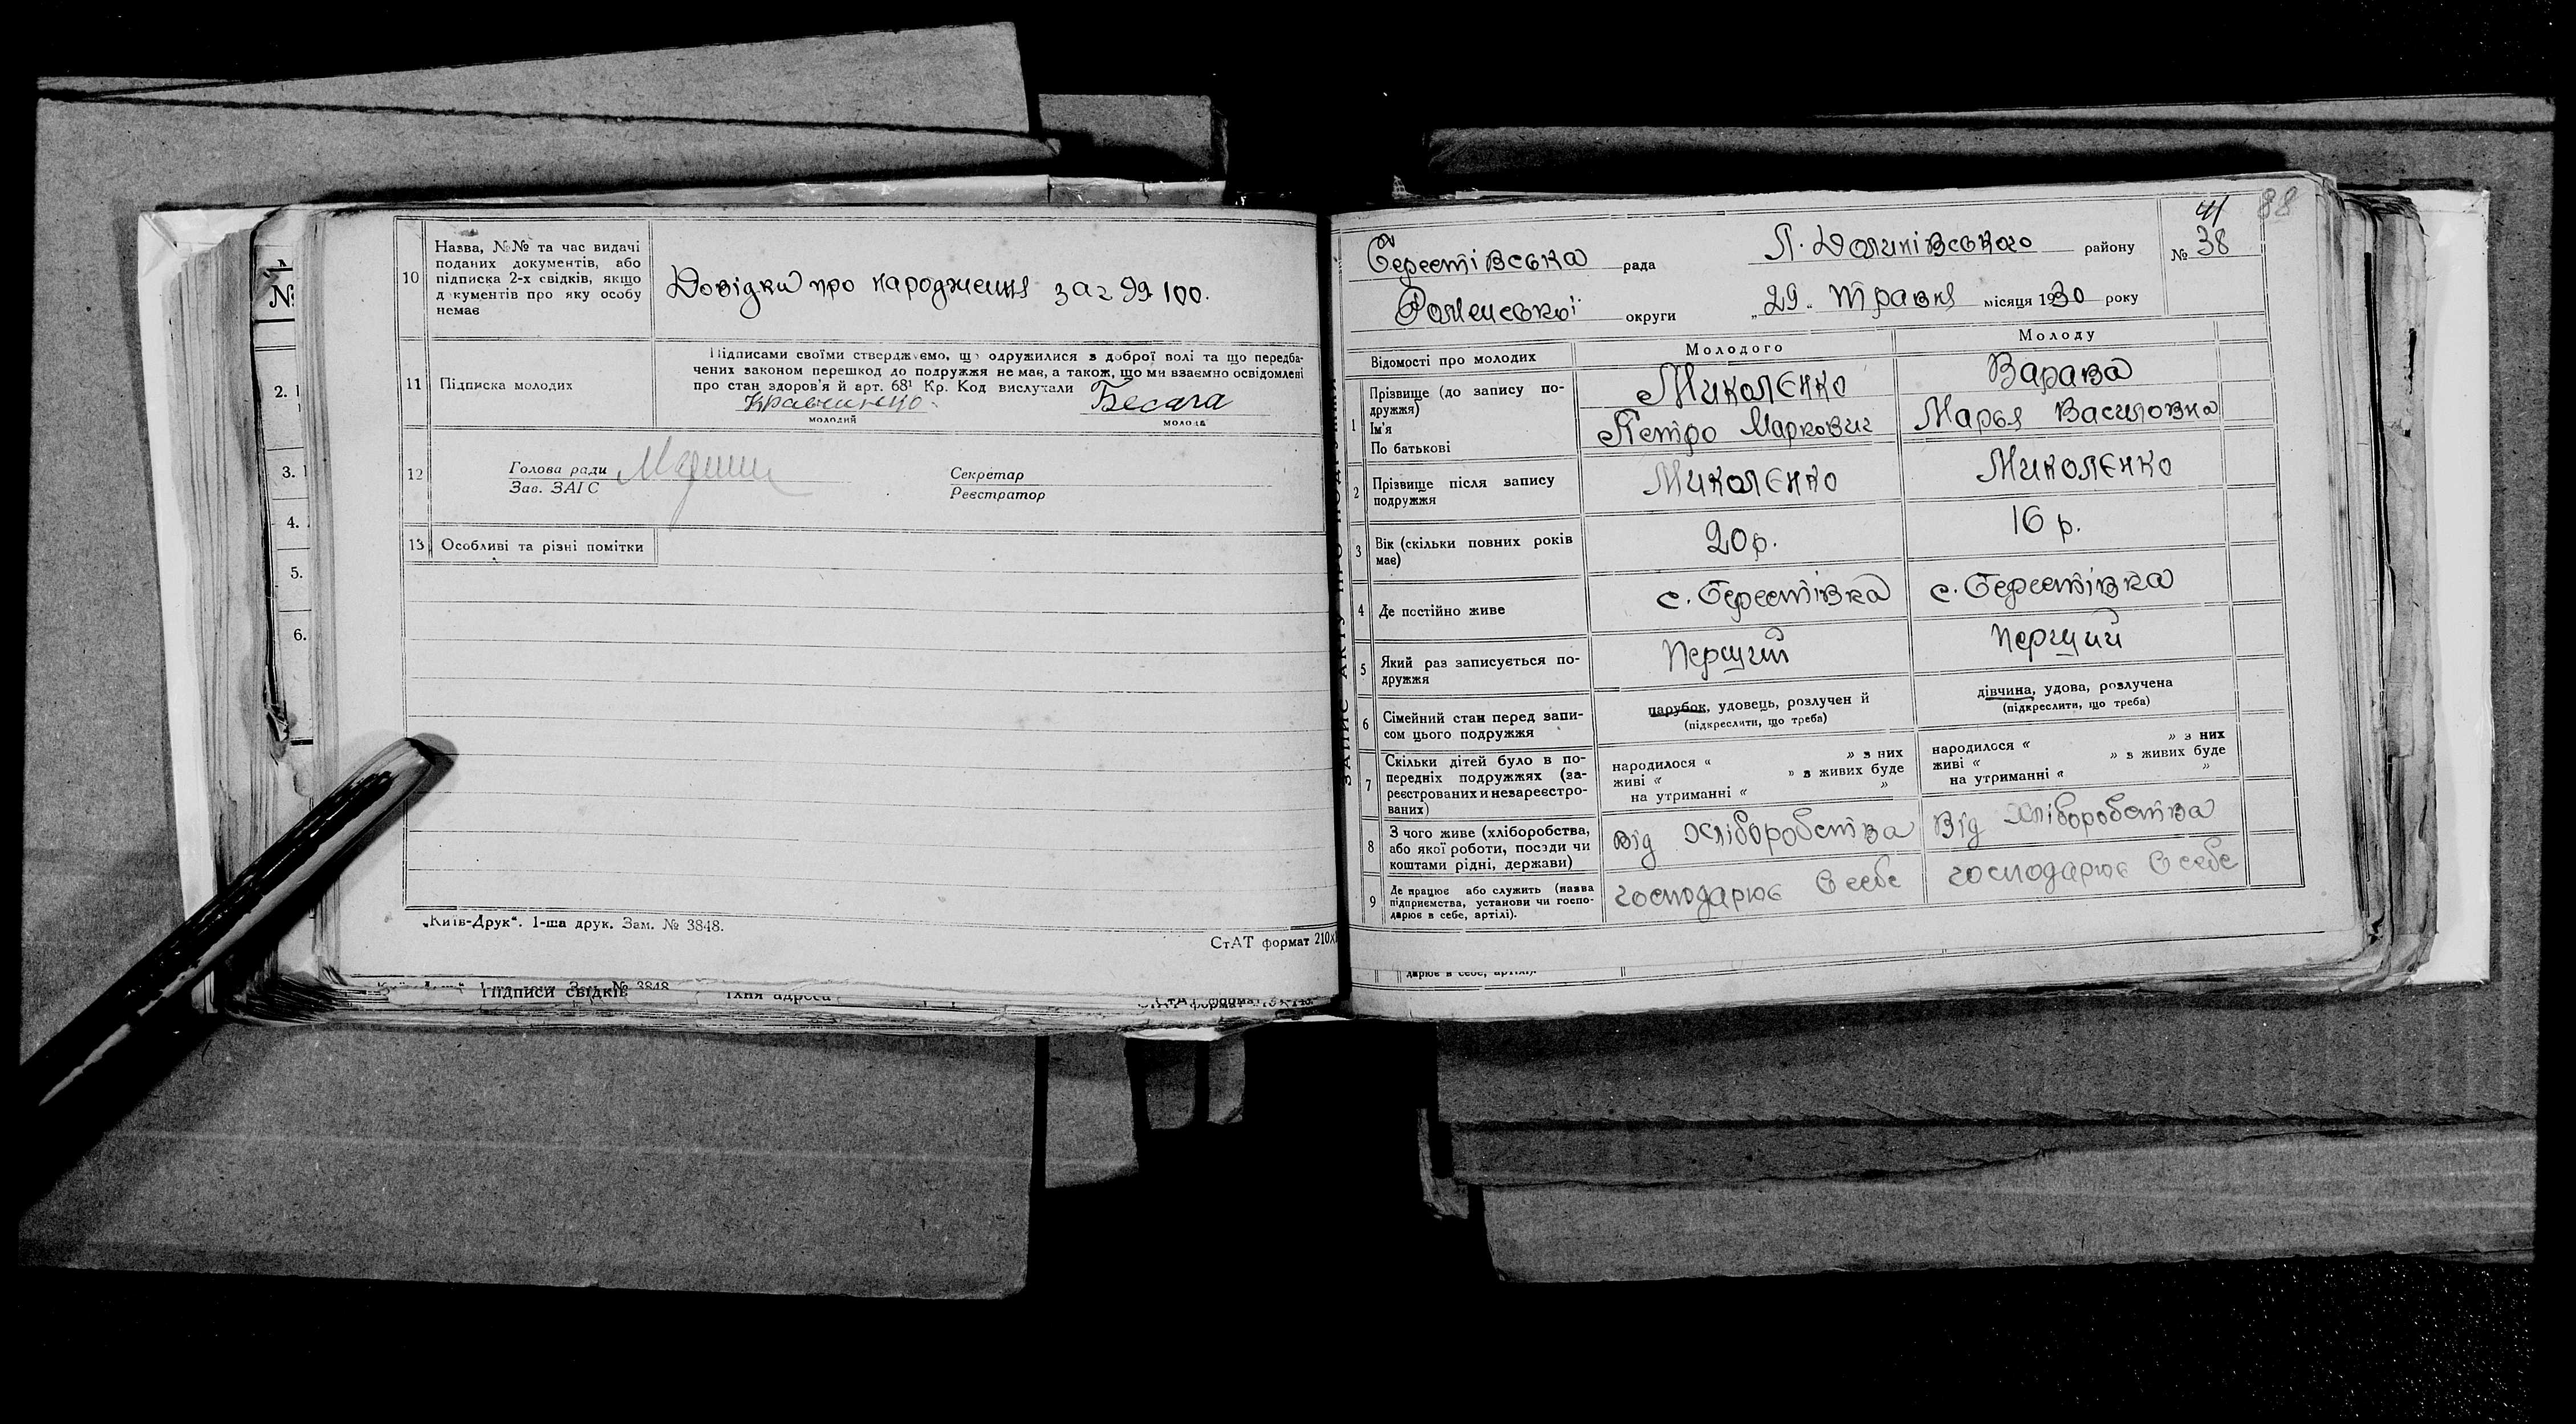 10 Назва, №№ та час видачі
поданих документів, або
підписка 2-х свідків, якщо
д кументів про яку особу
немає
Довідки про народження за г 99 100.
11 Підписка молодих
Підписами своїми стверджуємо, що одружилися з доброї волі та що передба-
чених законом перешкод до подружжя не має, а також, що ми взаємно освідомлені
про стан здоров'я й арт. 68¹ Кр. Код вислухали
Бесага
молодий
молода
12 Голова ради
Зав. ЗАГС
Секретар
Реєстратор
13 Особливі та різні помітки
„Київ-Друк“. 1-ша друк. Зам. № 3848.
СтАТ формат 210х
Підписи свідків
їхня адреса
№
2.
3.
4.
5.
6.
88
41
Берестівська рада
Л. Долинівського району
№ 38
Роменської округи
„29„ травня місяця 1930 року
Відомості про молодих
Молодого
Молоду
1 Прізвище (до запису по-
дружжя)
Ім'я
По батькові
Миколєнко
Петро Маркович
Варава
Марья Василовна
2 Прізвище після запису
подружжя
Миколєнко
Миколєнко
3 Вік (скільки повних років
має)
20 р.
16 р.
4 Де постійно живе
с. Берестівка
с. Берестівка
5 Який раз записується по-
дружжя
Перший
Перший
6 Сімейний стан перед запи-
сом цього подружжя
парубок, удовець, розлучен й
(підкреслити, що треба)
дівчина, удова, розлучена
(підкреслити, що треба)
7 Скільки дітей було в по-
передніх подружжях (за-
реєстрованих и незареєстро-
ваних)
народилося « » з них
живі « » з живих буде
на утриманні « »
народилося « » з них
живі « » з живих буде
на утриманні « »
8 З чого живе (хліборобства,
або якої роботи, посади чи
коштами рідні, держави)
Від Хліборобства
Від Хліборобства
9 Де працює або служить (назва
підприємства, установи чи госпо-
дарює в себе, артілі).
господарює в себе
господарює в себе
дарює в себе, артілі).